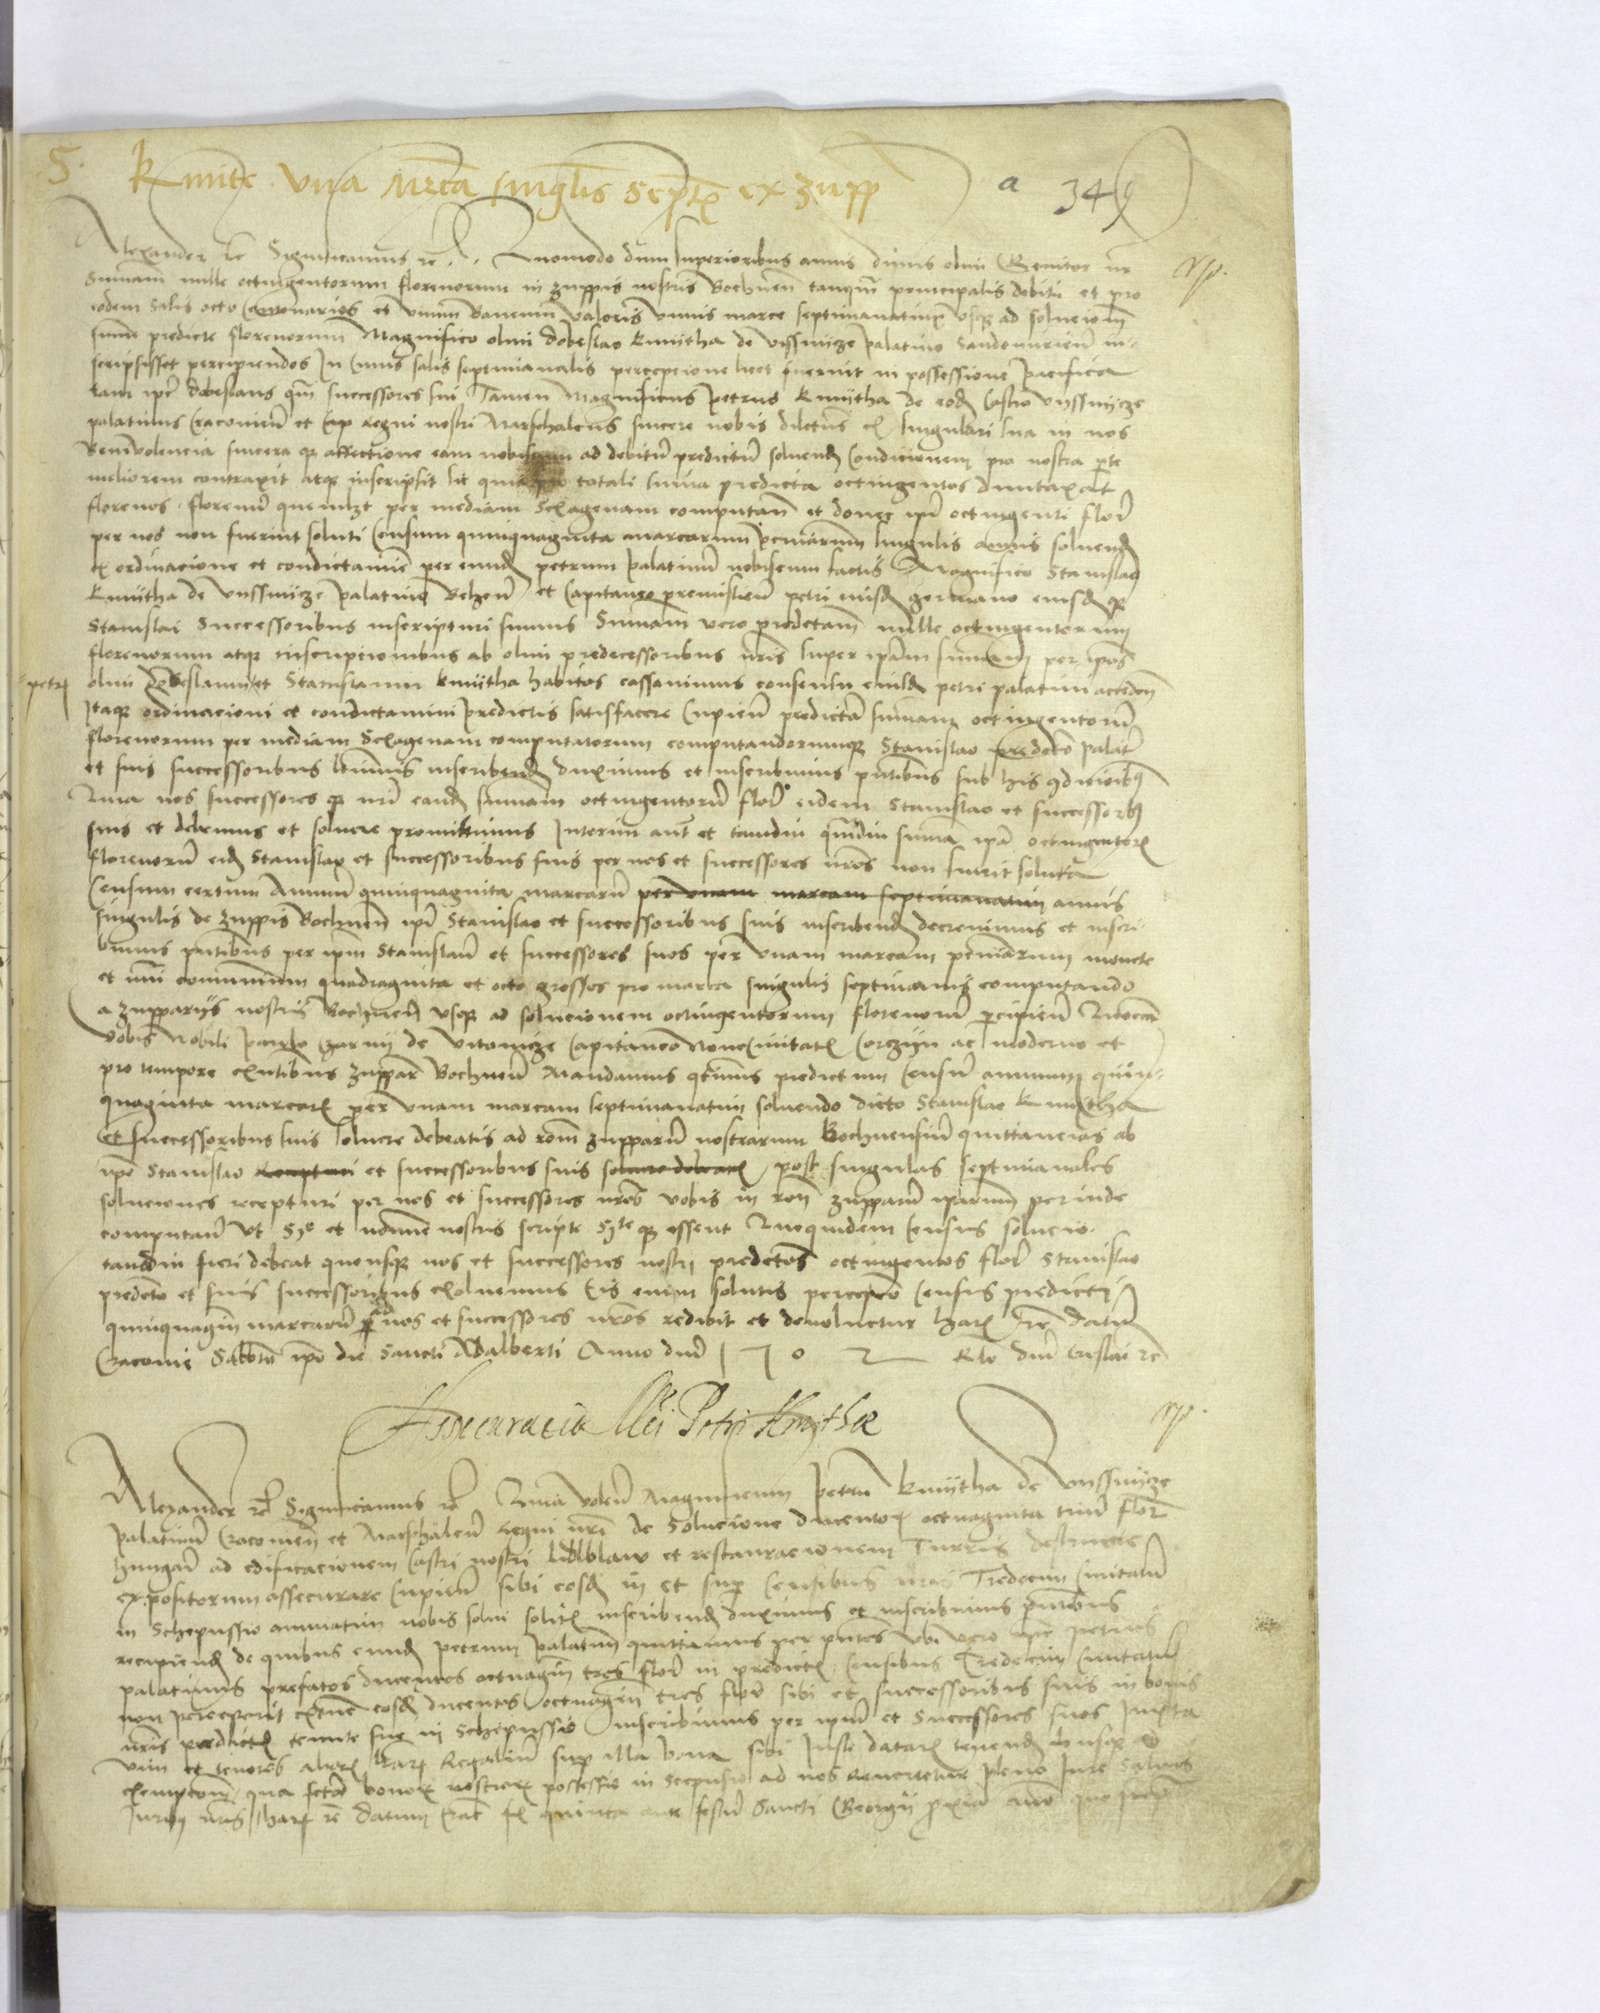 S. Kmite una mrca singlis septis ex zupp a 34
Alexander etc Significamus etc. Quomodo dum superioribus annis divus olim Genitor nr
Summam mille octingentorum florenorum in zuppis nostris Bochnen tanqm principalis debiti et pro
eodem salis octo centenarios et unum Bancum valoris unius marce septimanatim usque ad solucionem
summe predicte florenorum Magnifico olim Dobeslao Kmitha de Vissnicze palatino Sandomirien in-
scripsisset percipiendos In cuius salis septimanalis percepcione licet fuerint in possessione pacifica
tam ipse Dobeslaus qm successores sui Tamen Magnificus Petrus Kmitha de eod castro Vyssnicze
palatinus Cracovien et regni nostri Marschalcus sincere nobis dilectus ex singulari sua in nos
Benivolencia sincera que affectione eam nobiscum ad debitum predictum solvend condicionem pro nostra pte
meliorem contraxit atque inscripsit sic quod pro totali summa predicta octingentos dumtaxat
florenos florenum quemlibet per mediam sexagenam computan et donec ipsi octingenti flor
per nos non fuerint soluti censum quinquaginta marcarum pecuniarum singulis annis solvend
ex ordinacione et condictamine per eund petrum palatinum nobiscum factis Magnifico Stanislao
Kmitha de Vissnicze palatino Belzen et Capitaneo premislien petri eiusd germano eiusd que
Stanislai successoribus inscripturi sumus Summam vero predictam mille octingentorum
florenorum atque inscripcionibus ab olim predecessoribus nris super ipsam summam per ipsos
petri
olim Dobeslaum et Stanislaum Kmitha habitos cassavimus consensu eiusd petri palatini acceden
Itaque ordinacioni et condictamini predictis satisfacere cupien predictam summam octingentorum
florenorum per mediam sexagenam computatorum computandorumque Stanislao predicto palat
et suis successoribus suis inscribend duximus et inscribimus pntibus sub his condicionibus
Quia nos successores que nri eand summam octingentorum flor eidem Stanislao et successorib
suis et debemus et solvere promittimus Interim aut et tamdiu quamdiu summa ipsa octingentor
florenorum eid Stanislao et successoribus suis per nos et successores nros non fuerit soluta
Censum certum annuum quinquaginta marcarum per unam marcam septimanatim annis
singulis de zuppis Bochnen ipsi Stanislao et successoribus suis inscribend decrevimus et inscri-
bimus pntibus per ipsm Stanislaum et successores suos per unam marcam pecuniarum monete
et nri communium quadraginta et octo grossos pro marca singulis septimanis computando
a zuppariis nostris Bochnen usque ad solucionem octingentorum florenorum percipien
vobis Nobili de Vitowicze Capitaneo Nove Civitatis Corczyn ac moderno et
pro tempore existentibus zuppar Bochnen Mandamus quatenus predictum censum annuum quin-
quaginta marcar per unam marcam septimanatim solvendo dicto Stanislao Kmitha
et successoribus suis solvere debeatis ad racionem zupparum nostrarum Bochnensium quittancias ab
ipso Stanislao recepturi et successoribus suis solvere debeatis post singulas septimanales
soluciones recepturi per nos et successores nros vobis in ron zupparum ipsarum perinde
computan ut et nomine nostris scripte que essent Que quidem census solucio
tamdiu fieri debeat quousque nos et successores nostri predictos octingentos flor Stanislao
predicto et suis successoribus exolvemus Eis enim solutis percepcio census predicti
quinquagin marcarum ad nos et successores nros redibit et devolvetur harum etc Datum
Cracovie Sabbato ipso die Sancti Adalberti Anno dni 1502 Rlo dni etc

Assecuracia Mci Petri Kmithae
Alexander etc Significamus etc Quia volen Magnificum Petrum Kmitha de Vissnicze
palatinum Cracovien et Marschalcum Regni nri de solucione ducentor octuaginta trium flor
hungar ad edificacionem Castri nostri Lublaw et restauracionem Turris destructe
expositorum assecurare cupien sibi eosd in et sup censibus nris Tredecim Civitatum
in Schepussio annuatim nobis solvi solitis inscribend duximus et inscribimus pntibus
recipiend de quibus eund petrum palatinum quittamus per pntes ubi vero ipse petrus
palatinus prefatos ducentos octuagin tres flor in predictis censibus Tredecim Civitatum
non perceperit extunc eosd ducentos octuagin tres flor sibi et successoribus suis in bonis
nris predictis tenute sue in Schepussio inscribimus per ipsum et successores suos Juxta
vim et tenores aliar lrar Regalium sup illa bona sibi Juste datar tenend
exempcionem qua facta bonor nostror possessio in Scepusio ad nos revertetur pleno Jure Salvis
Juribus nris harum etc Datum Crac f quinta ante festum Sancti Georgii proxima anno quo supra